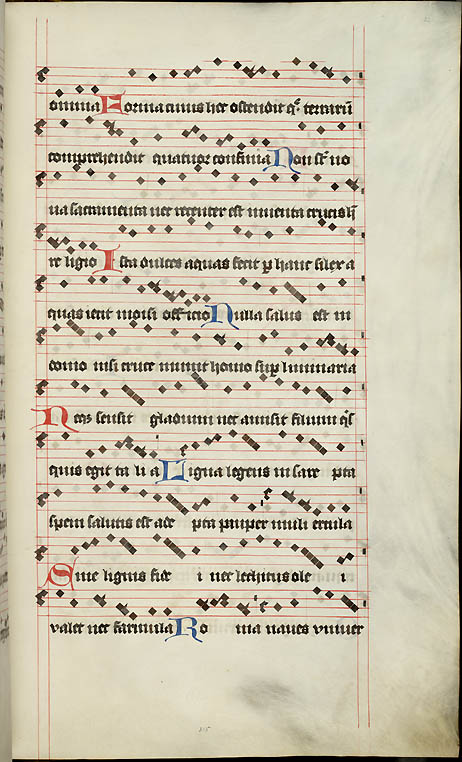 omnia Forma crucis hec ostendit qd terrarum
comprehendit quatuor confinia Non sunt no
ua sacramenta nec recenter est inuenta crucis h
ec religio Ista dulces aquas fecit per hanc silex a
quas iecit moisi officio Nulla salus est in
domo nisi cruce munit homo sup luminaria
Neqz sensit gladium nec amisit filium qs
quis egit ta li a Ligna legens in sare pta
spem salutis est ade pta pauper muli ercula
Sine lignis fide i nec lechitus ole i
valet nec farinula Ro ma naues vniuer
315